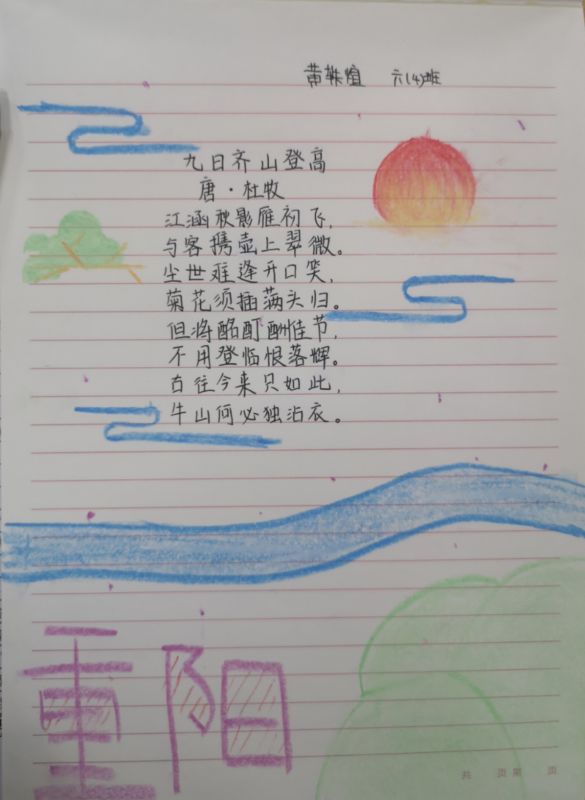 黄轶煊 六(4)班
九日齐山登高
唐·杜牧
江涵秋影雁初飞，
与客携壶上翠微。
尘世难逢开口笑，
菊花须插满头归。
但将酩酊酬佳节，
不用登临恨落辉。
古往今来只如此，
牛山何必独沾衣。
重阳
共 页 第 页